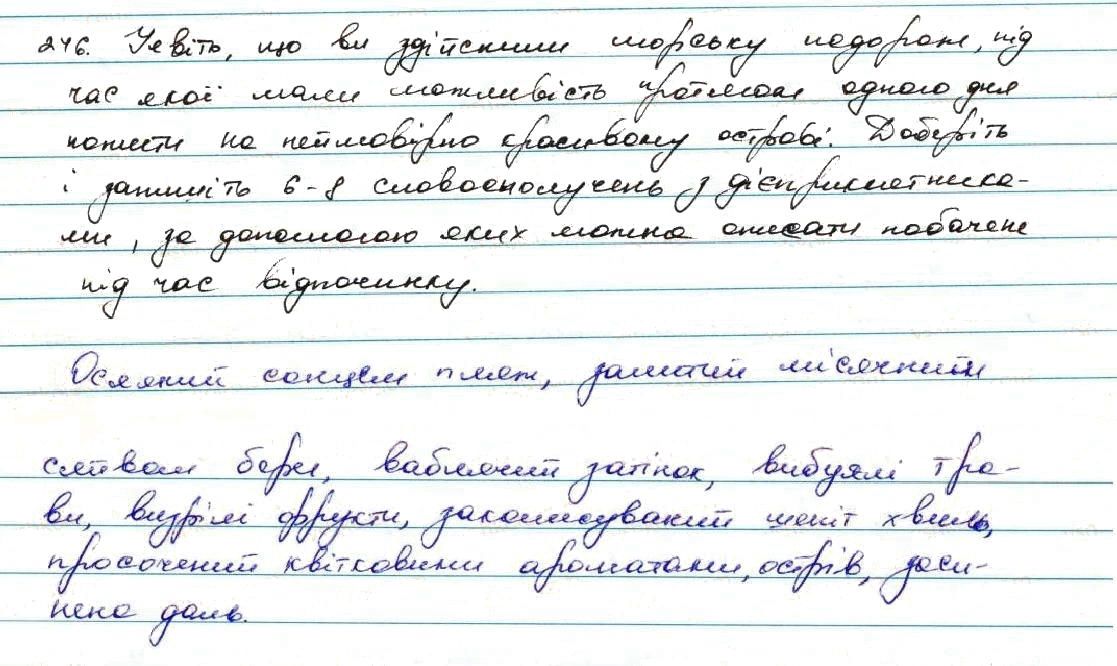 246. Уявіть, що ви здійснили морську подорож, під
час якої мали можливість протягом одного дня
пожити на неймовірно красивому острові. Доберіть
і запишіть 6-8 словосполучень з дієприкметника-
ми, за допомогою яких можна описати побачене
під час відпочинку.
Осяяний сонцем пляж, залитий місячним
сяйвом берег, вабл'ячий затінок, вибуялі тра-
ви, визрілі фрукти, заколисуваний шепіт хвиль,
просочений квітковими ароматами, острів, заси-
нена даль.